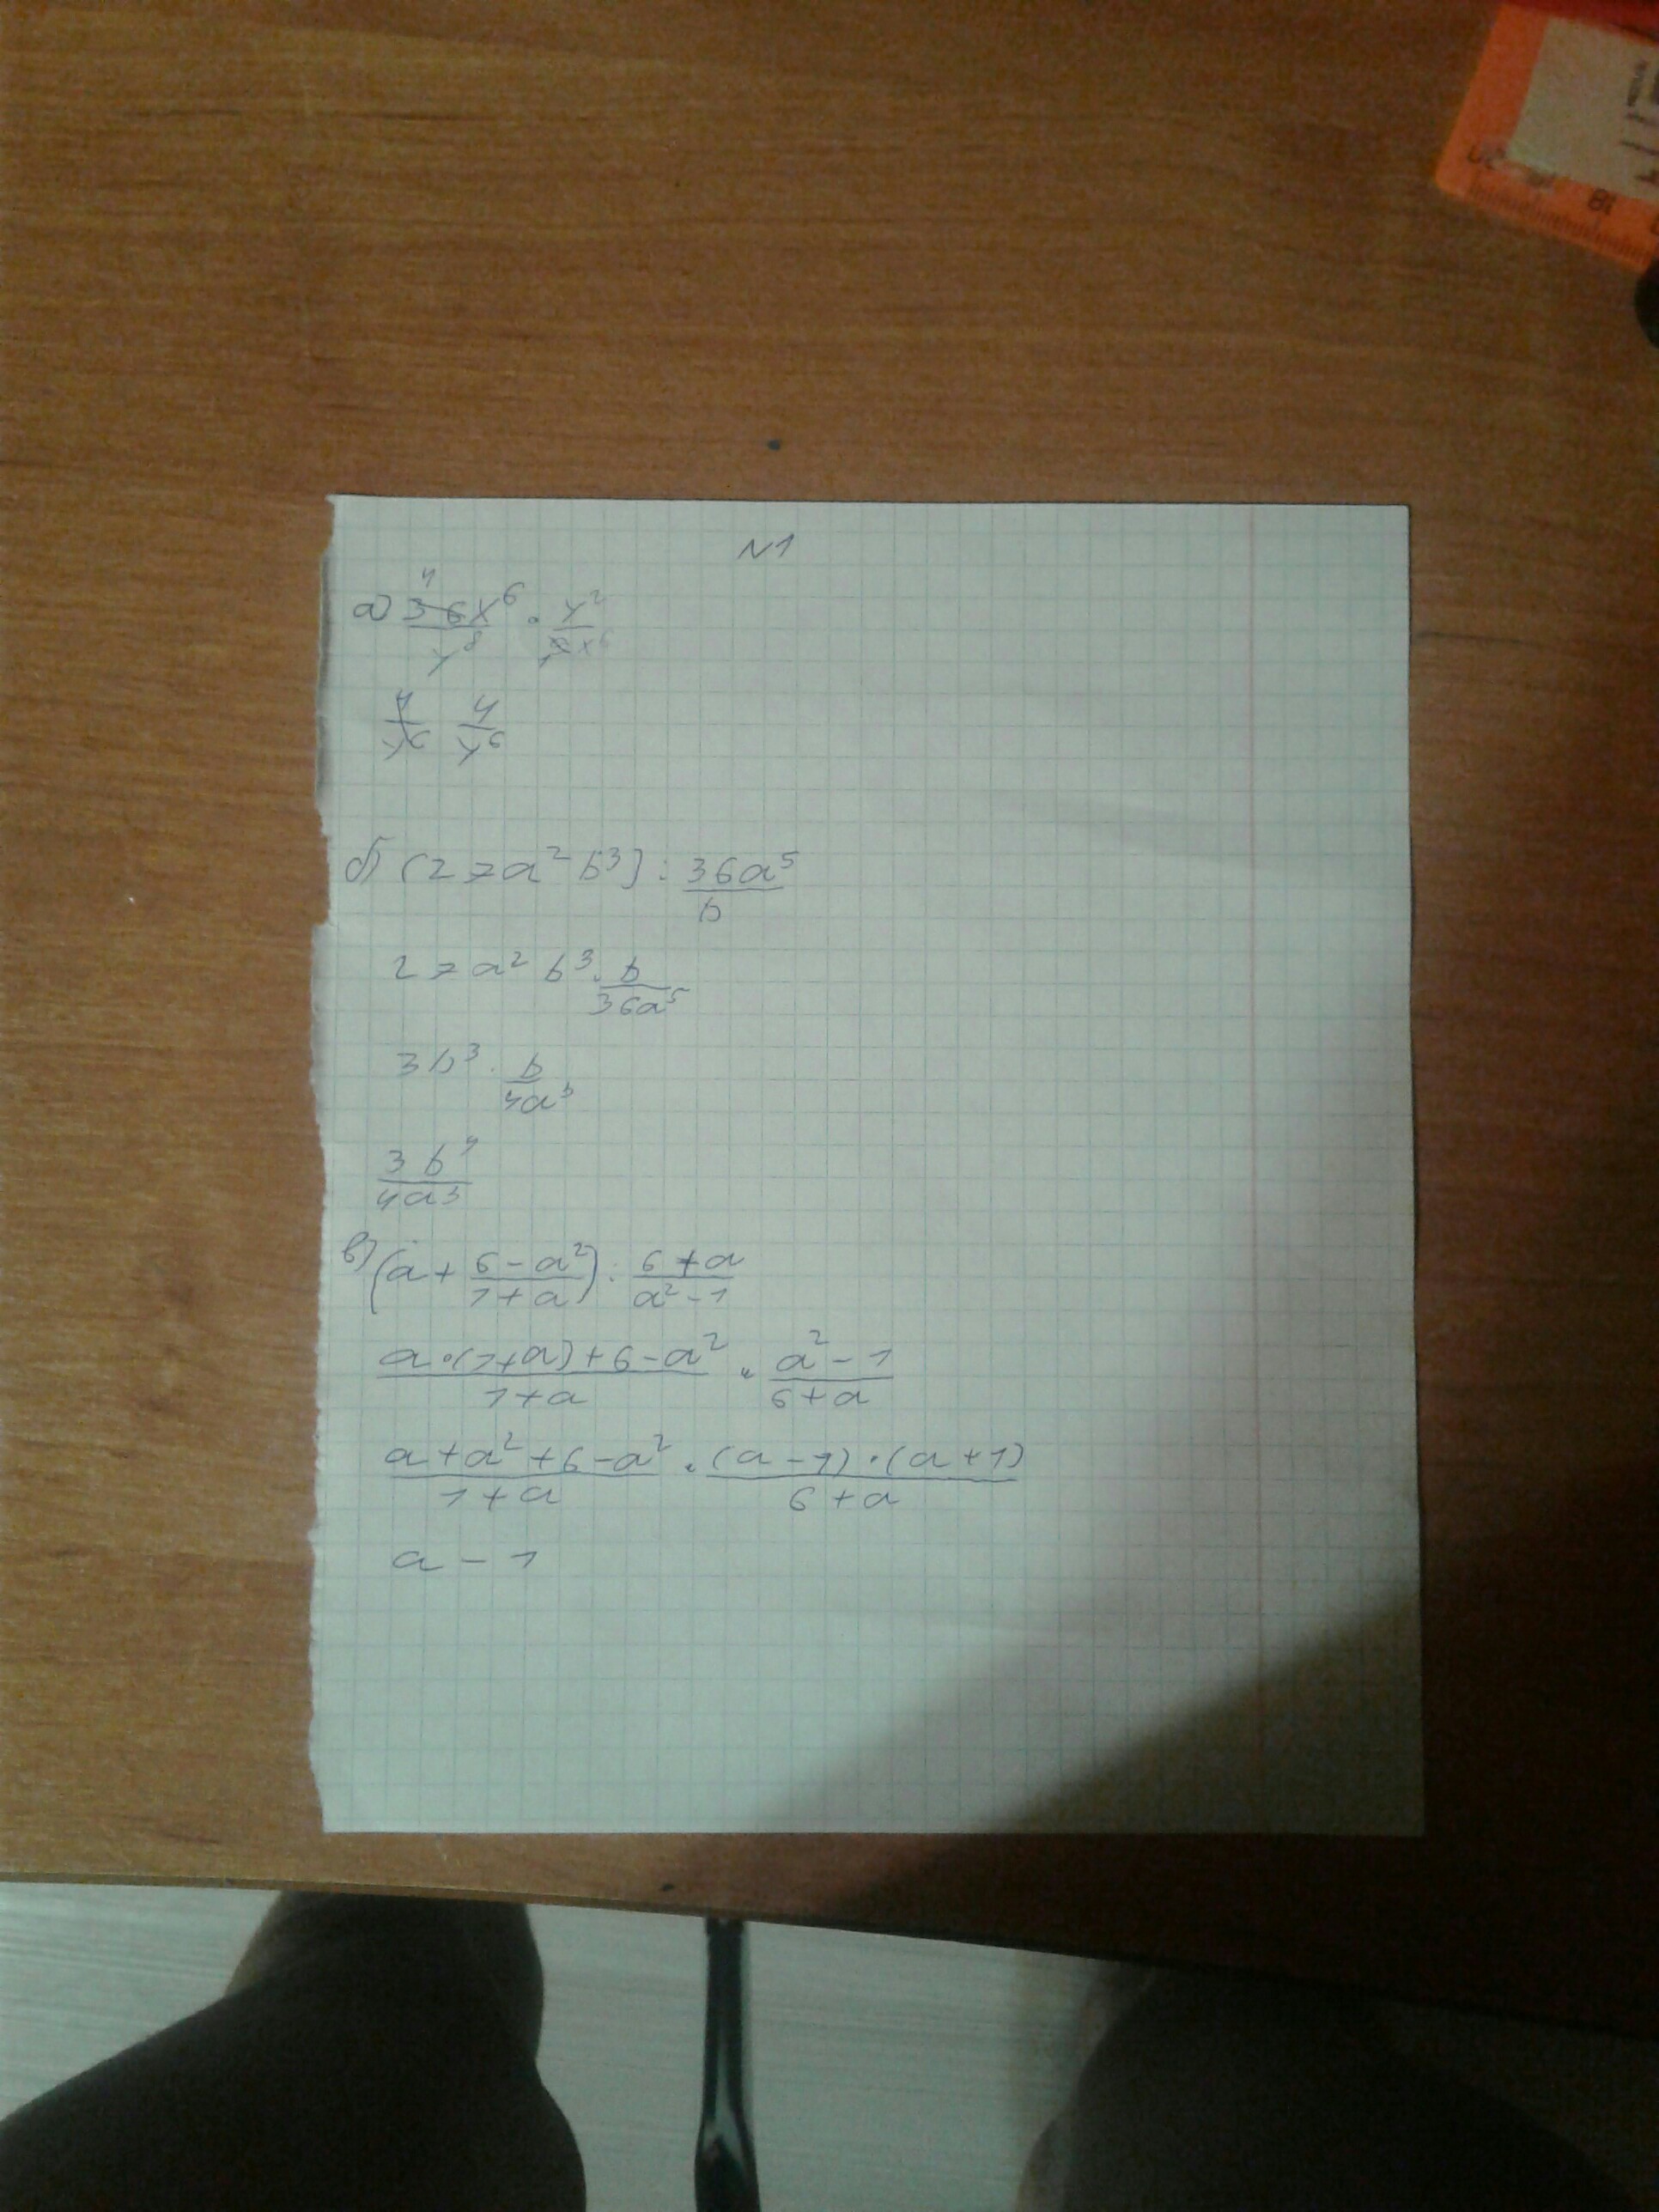 N1
а) 36x⁶/y⁸ · y²/9x⁶
4/y⁶ 4/y⁶
б) (27a² b³) : 36a⁵/b
27a² b³ · b/36a⁵
3b³ · b/4a³
3b⁴/4a³
в) (a + 6-a²/1+a) : 6+a/a²-1
a·(1+a)+6-a²/1+a · a²-1/6+a
a+a²+6-a²/1+a · (a-1)·(a+1)/6+a
a-1